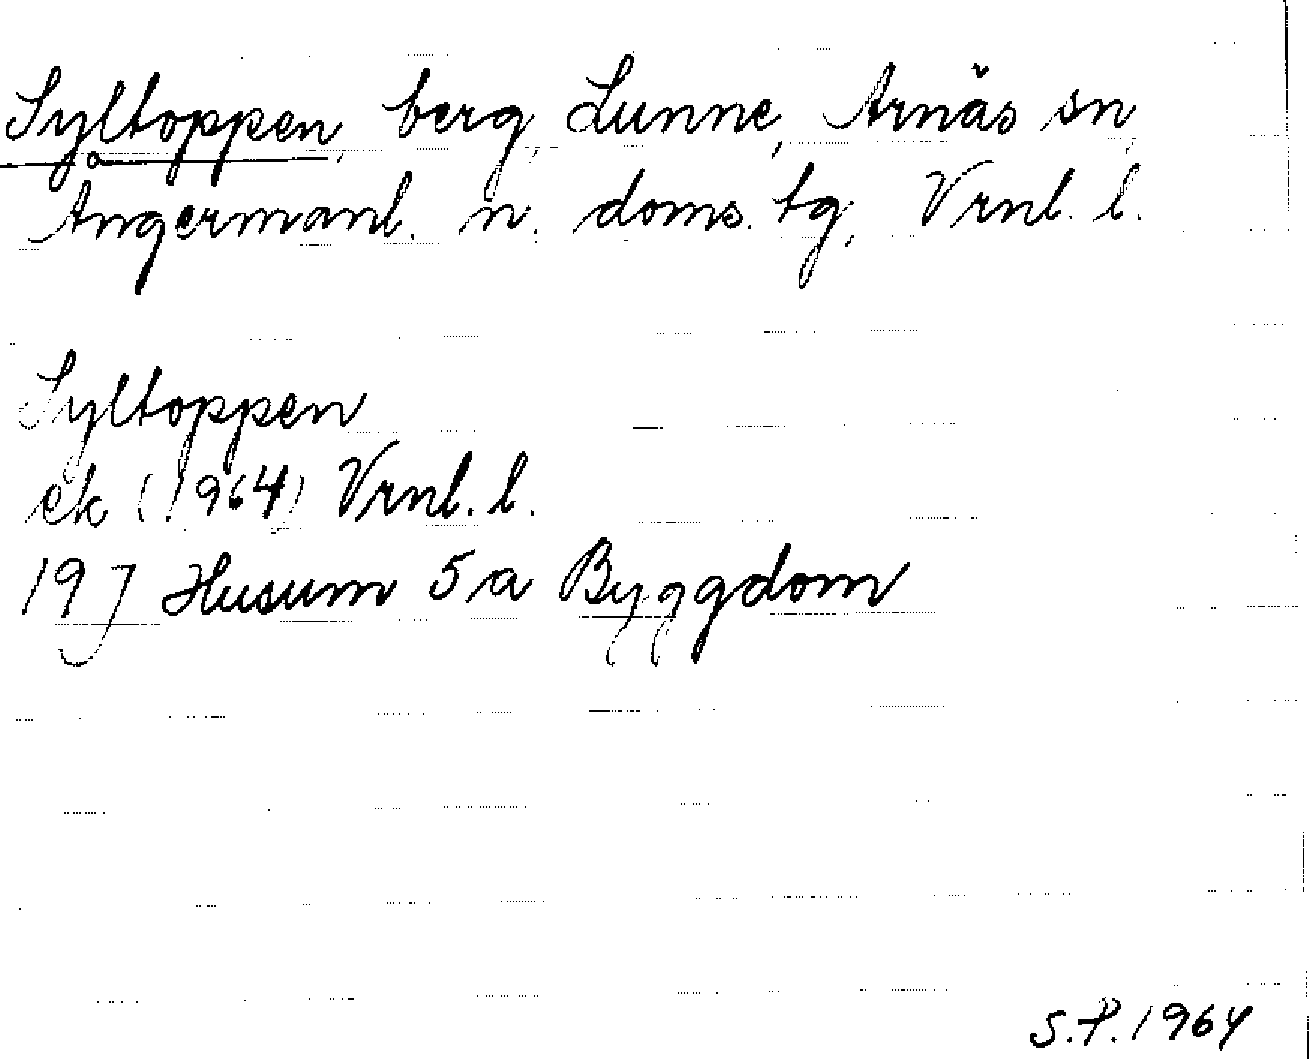 Syltoppen, berg, Lunne, Arnäs sn,
Ångermanl. n. doms. tg, Vrnl. l.
Syltoppen
ek (1964) Vrnl. l.
19J Husum 5a Byggdom
S.P. 1964